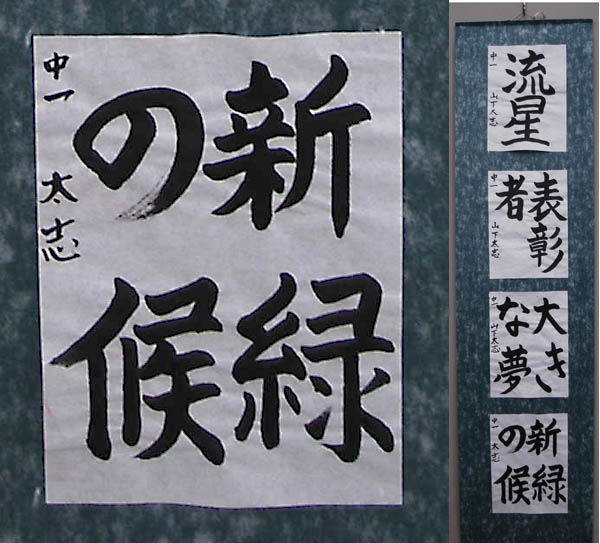 新緑
の候
中一 太志
流星
中一 山下太志
表彰
者
中一 山下太志
大き
な夢
中一 山下太志
新緑
の候
中一 太志